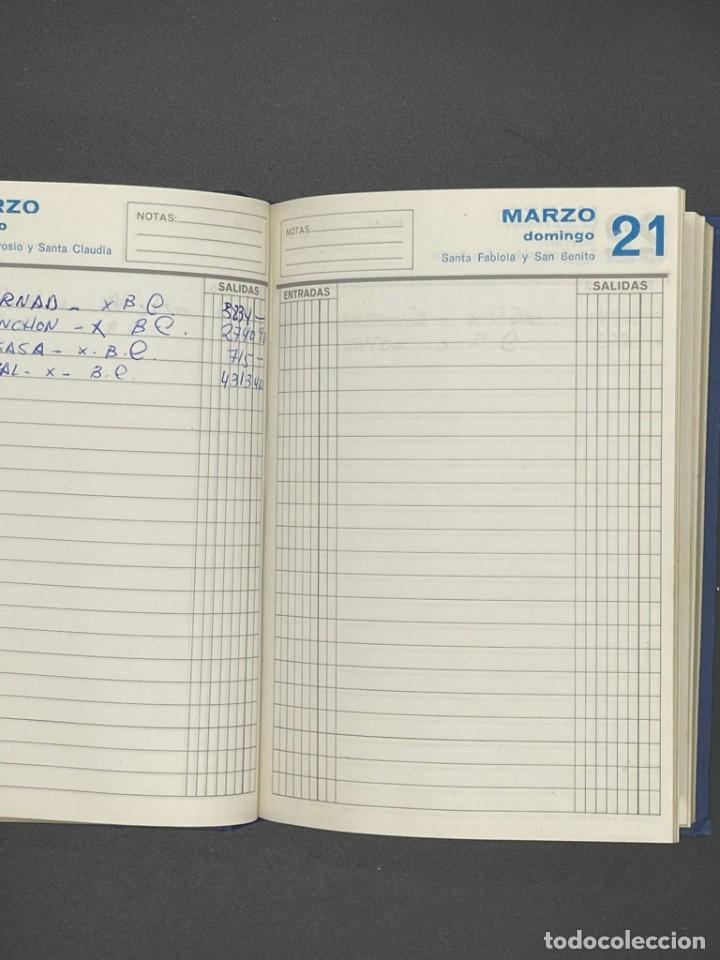 RZO
o
rosio y Santa Claudia
NOTAS:
SALIDAS
RNAD - x B.C. 5834-
NCHON - x B C. 2740
GASA - x. B.C. 715-
AL - x - B.C. 4313 40
NOTAS:
MARZO
domingo
Santa Fabiola y San Benito
21
ENTRADAS
SALIDAS
todocoleccion